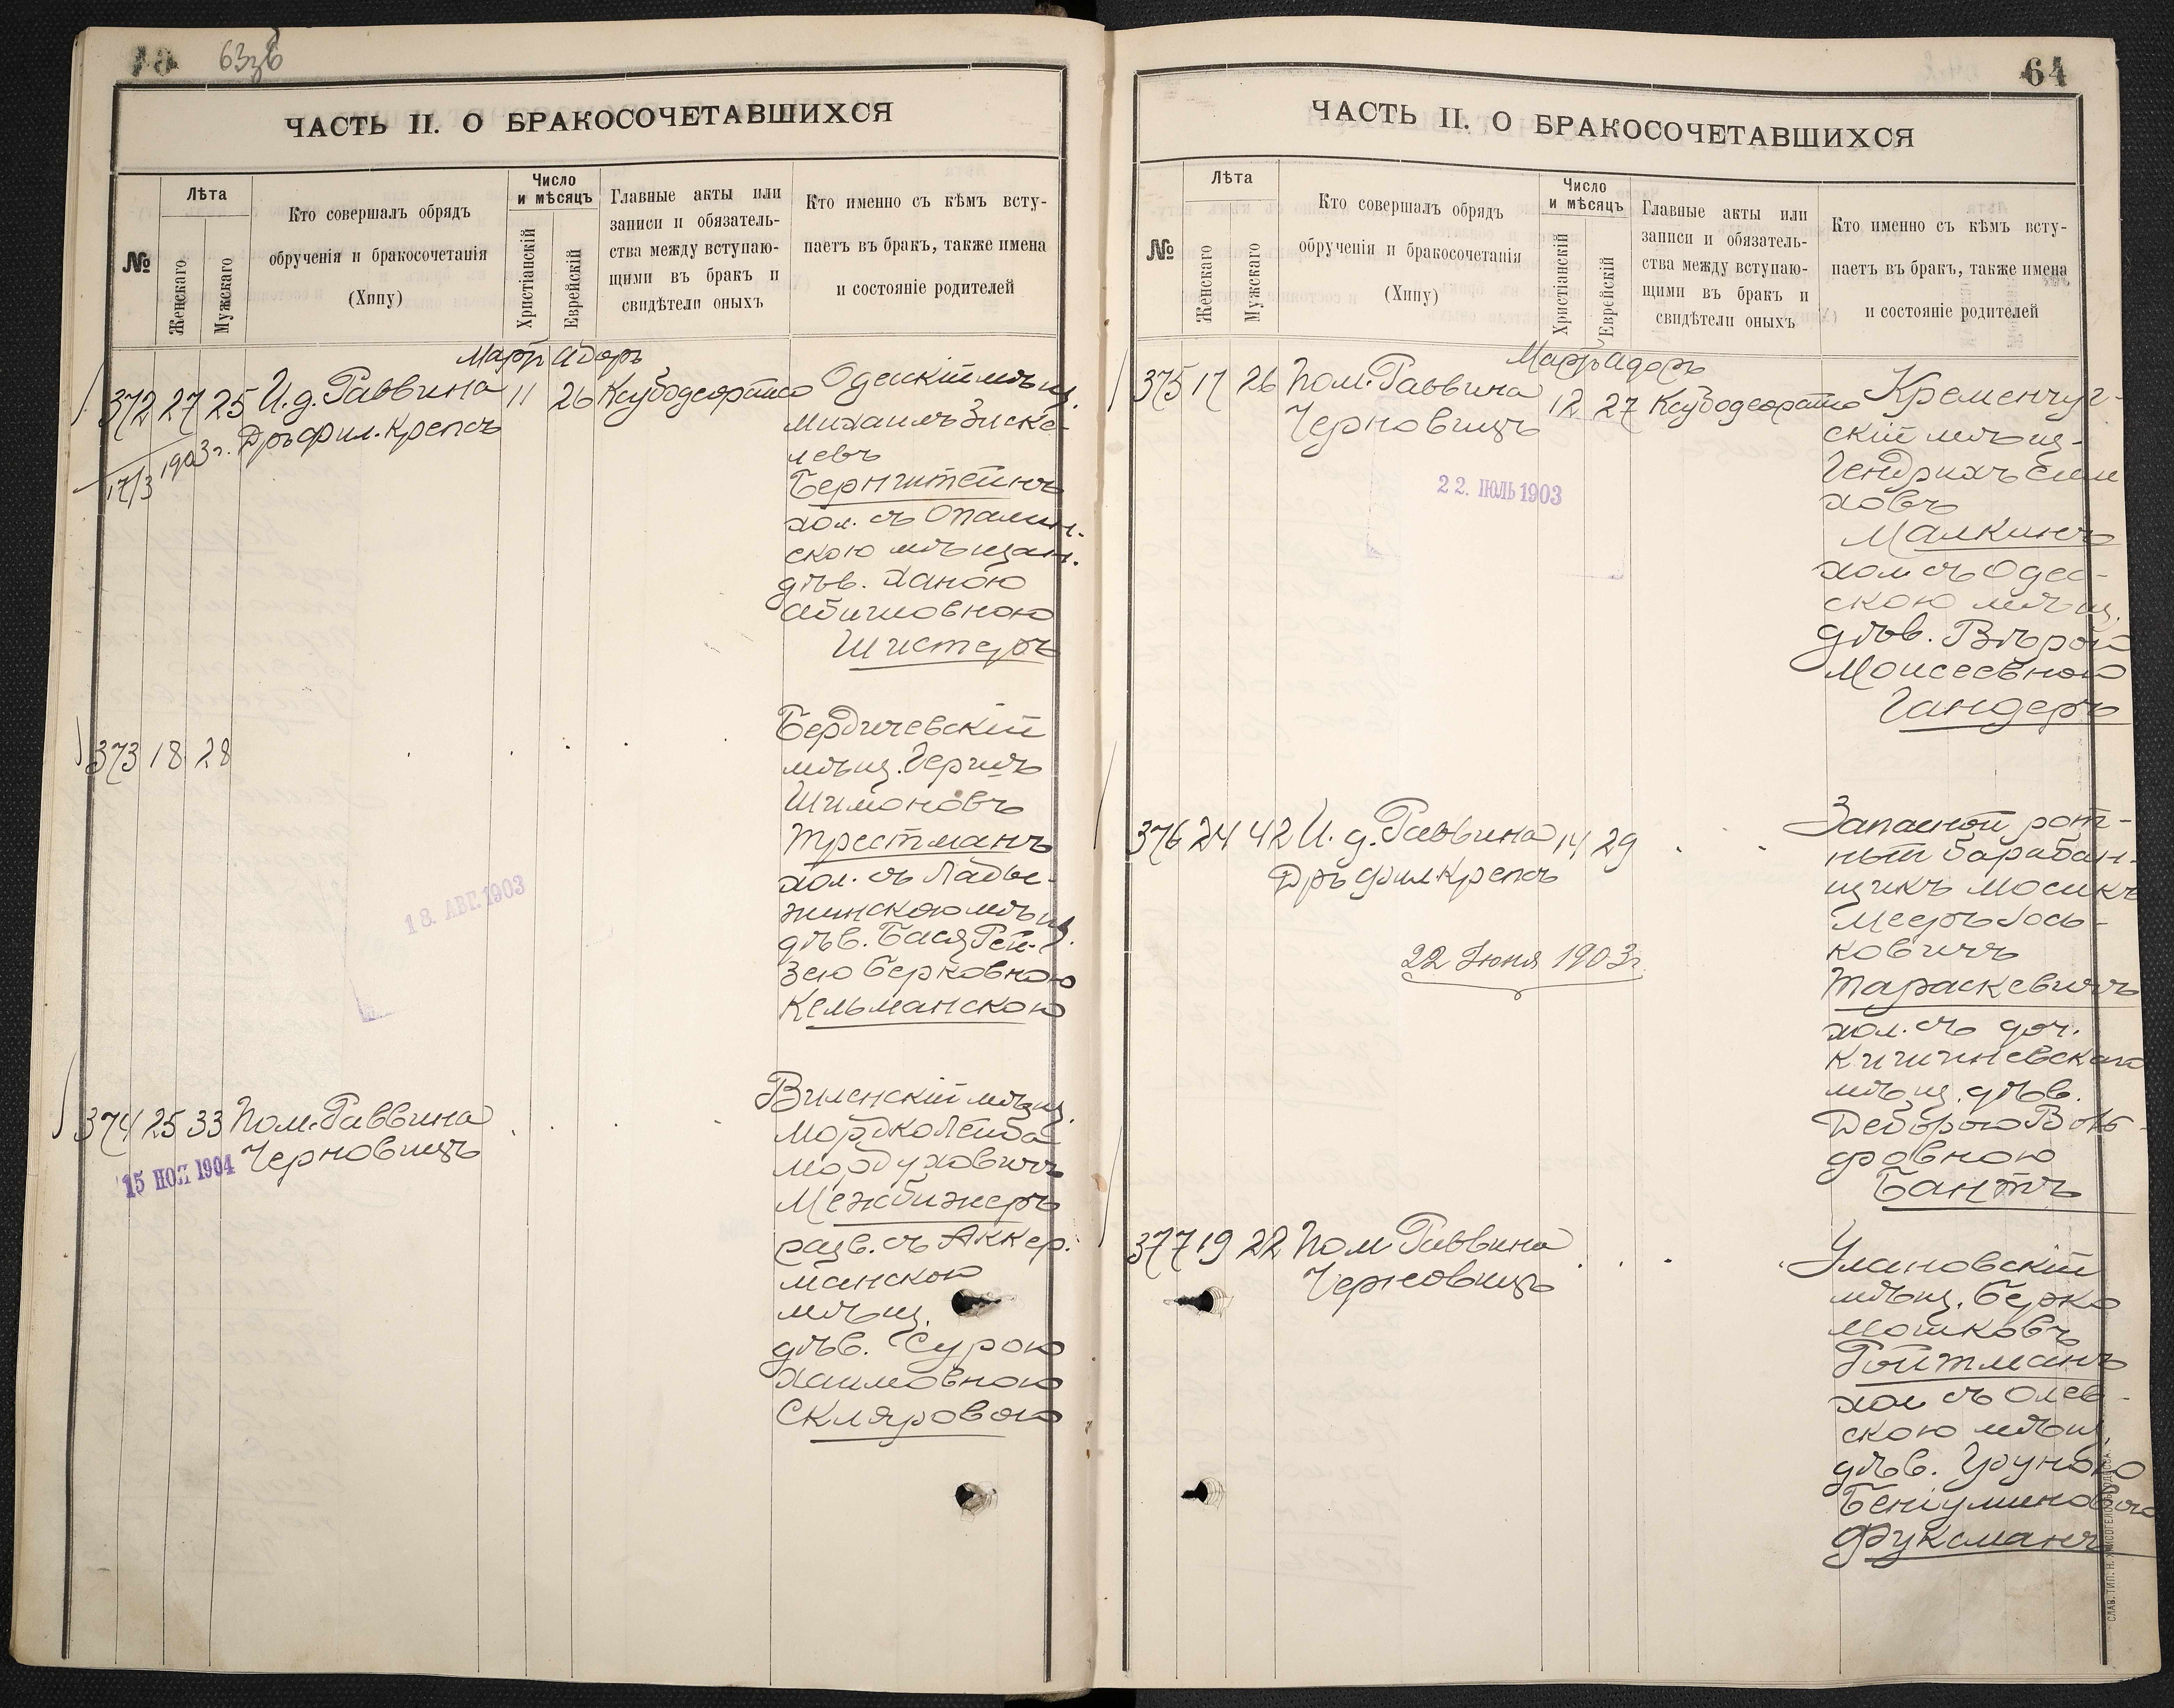 63зв
ЧАСТЬ II. О БРАКОСОЧЕТАВШИХСЯ
№
Лѣта
Женскаго
Мужскаго
Кто совершалъ обрядъ
обрученія и бракосочетанія
(Хипу)
Число
и мѣсяцъ
Христіанскій
Еврейскій
Главные акты или
записи и обязатель-
ства между вступаю-
щими въ бракъ и
свидѣтели оныхъ
Кто именно съ кѣмъ всту-
паетъ въ бракъ, также имена
и состояніе родителей
Мартъ Адаръ
372 27 25 И. д. Раввина 11 26 Ксубодеорайсо
Дръ фил. Крепсъ
17/3 1903 г.
Одескій мѣщ.
Михаилъ Зиске-
левъ
Бернштейнъ
хол. съ Опалин-
скою мѣщан.
дѣв. Ханою
Абишовною
Шистеръ
373 18 28
Бердичевскій
мѣщ. Гершъ
Шимоновъ
Трестманъ
хол. съ Лады-
жинскою мѣщ.
дѣв. Бася Рей-
зею Берковною
Кельманскою
18. АВГ. 1903
374 25 33 Пом. Раввина
Черновицъ
15 НОЯ 1904
Виленскій мѣщ.
Мордко Лейба
Мордуховичъ
Межбижеръ
разв. съ Аккер-
манскою
мѣщ.
дѣв. Сурою
Хаимовною
Скляровою
64
ЧАСТЬ II. О БРАКОСОЧЕТАВШИХСЯ
№
Лѣта
Женскаго
Мужскаго
Кто совершалъ обрядъ
обрученія и бракосочетанія
(Хипу)
Число
и мѣсяцъ
Христіанскій
Еврейскій
Главные акты или
записи и обязатель-
ства между вступаю-
щими въ бракъ и
свидѣтели оныхъ
Кто именно съ кѣмъ всту-
паетъ въ бракъ, также имена
и состояніе родителей
Мартъ Адаръ
375 17 26 Пом. Раввина 12 27 Ксубодеорайсо
Черновицъ
22. ІЮЛЬ 1903
Кременчуг-
скій мѣщ-
Гендрихъ Ели
ховъ
Малкинъ
хол съ Одес-
скою мѣщ.
дѣв. Вѣрой
Моисеевной
Гандеръ
376 24 42 И. д. Раввина 14 29
Дръ фил. Крепсъ
22 Іюня 1903 г.
Запасной рот-
ный барабан-
щикъ Мосикъ
Мееръ Іось-
ковичъ
Тараскевичъ
хол. съ доч.
Кишиневскаго
мѣщ. дѣв.
Деборою Воль-
фовною
Бантъ
377 19 22 Пом Раввина
Черновицъ
Улановскій
мѣщ. Берко
Мошковъ
Ройтманъ
хол съ Олев-
скою мѣщ.
дѣв.
Беніуминовою
Фуксманъ